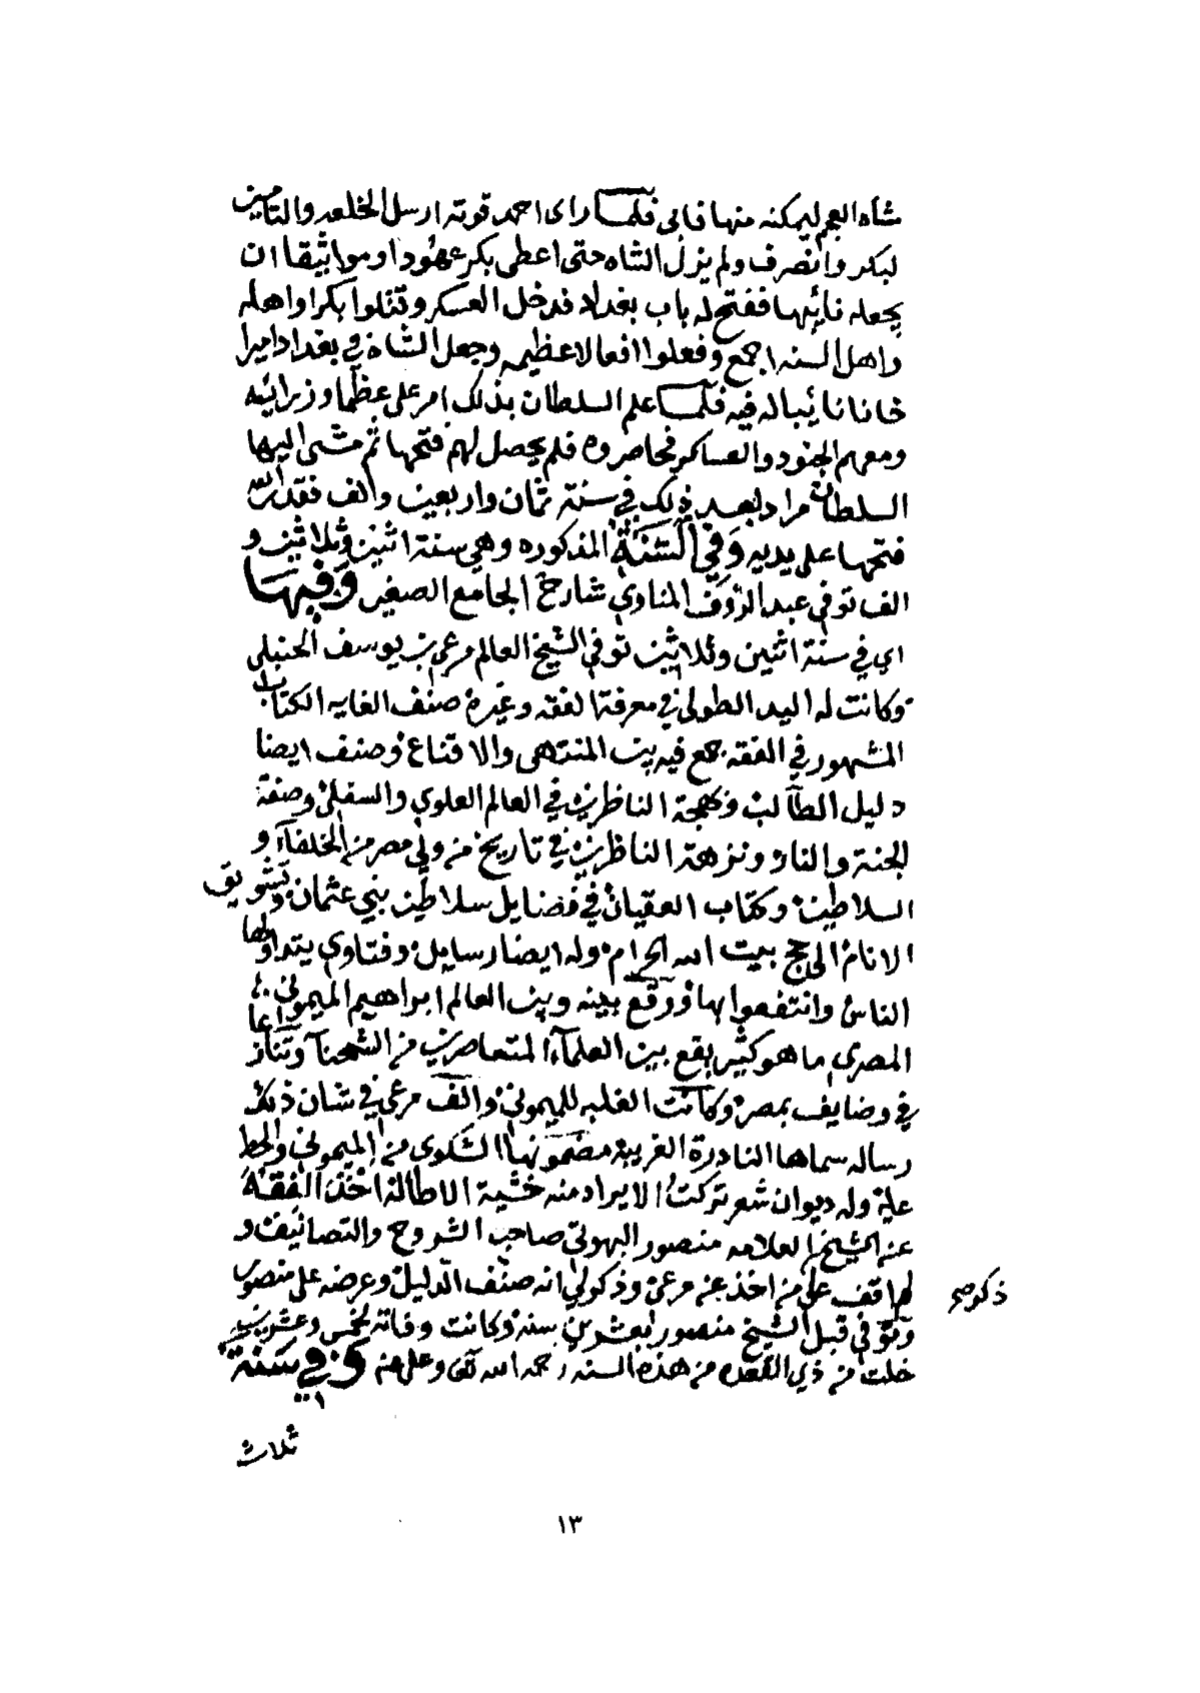 شاه العجم ليمكنه منها فابى فلما راى احمد قوته ارسل الخلعه والتامين
لبكر وانصرف ولم يزل الشاه حتى اعطى بكر عهودا ومواثيقا ان
يجعله نائبها ففتح له باب بغداد فدخل العسكر وقتلوا بكرا واهله
واهل السنه اجمع وفعلوا افعالا عظيمه وجعل الشاه في بغداد اميرا
خانا نايبا له فيه فلما علم السلطان بذلك امر على عظما وزرائيه
ومعهم الجنود والعساكر فحاصروه فلم يحصل لهم فتحها ثم مشى اليها
السلطان مراد بعد ذلك في سنة ثمان واربعين والف فقدر الله
فتحها على يديه وفي السنة المذكوره وهي سنة اثنين وثلاثين و
الف توفي عبد الرؤف المناوي شارح الجامع الصغير وفيها
اي في سنة اثنين وثلاثين توفي الشيخ العالم مرعي بن يوسف الحنبلي
وكانت له اليد الطولى في معرفة الفقه وغيره صنف الغايه الكتاب
المشهور في الفقه جمع فيه بين المنتهى والاقناع وصنف ايضا
دليل الطالب وبهجة الناظرين في العالم العلوي والسفلي وصفة
الجنة والنار ونزهة الناظرين في تاريخ من ولي مصر من الخلفآء و
السلاطين وكتاب العقيان في فضايل سلاطين بني عثمان وتشويق
الانام الى حج بيت الله الحرام وله ايضا رسايل وفتاوي يتداولها
الناس وانتفعوا بها ووقع بينه وبين العالم ابراهيم الميموني
المصري ما هو كثير يقع بين العلمآء المتعاصرين من الشحنآ وتنازعا
في وضايف بمصر وكانت الغلبه للميموني والف مرعي في شان ذلك
رساله سماها النادرة الغريبة مضمونها الشكوى من الميموني والحط
عليه وله ديوان شعر تركت الايراد منه خشية الاطالة اخذ الفقه
عنه الشيخ العلامه منصور البهوتي صاحب الشروح والتصانيف و
لم اقف على من اخذ عنه مرعي وذكر لي انه صنف الدليل وعرضه على منصور
ذكر صح
وتوفي قبل الشيخ منصور بعشرين سنة وكانت وفاته لخمس وعشرين
خلت من ذي القعده من هذه السنه رحمه الله تعالى وفي سنة
ثلاث
١٣